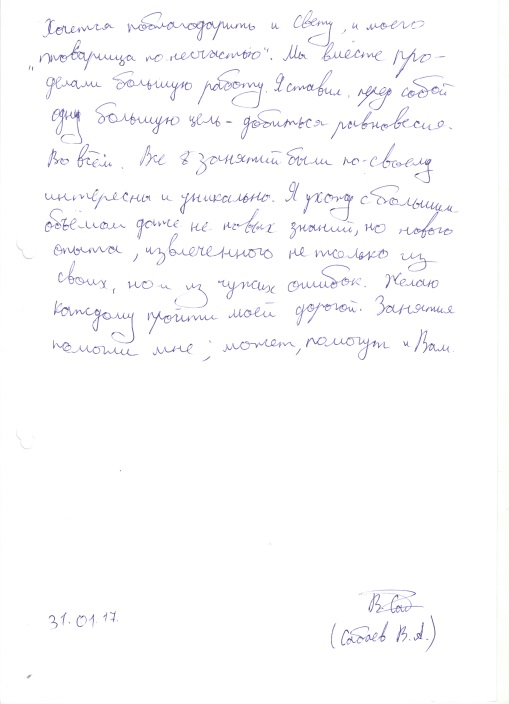 Хочется поблагодарить и Свету, и моего
"товарища по несчастью". Мы вместе про-
делали большую работу. Я ставил перед собой
одну большую цель - добиться равновесия.
Во всём. Все 8 занятий были по-своему
интересны и уникальны. Я ухожу с большим
объёмом даже не новых знаний, но нового
опыта, извлеченного не только из
своих, но и из чужих ошибок. Желаю
каждому пройти моей дорогой. Занятия
помогли мне; может, помогут и Вам.
31.01.17.
(Сабаев В.А.)